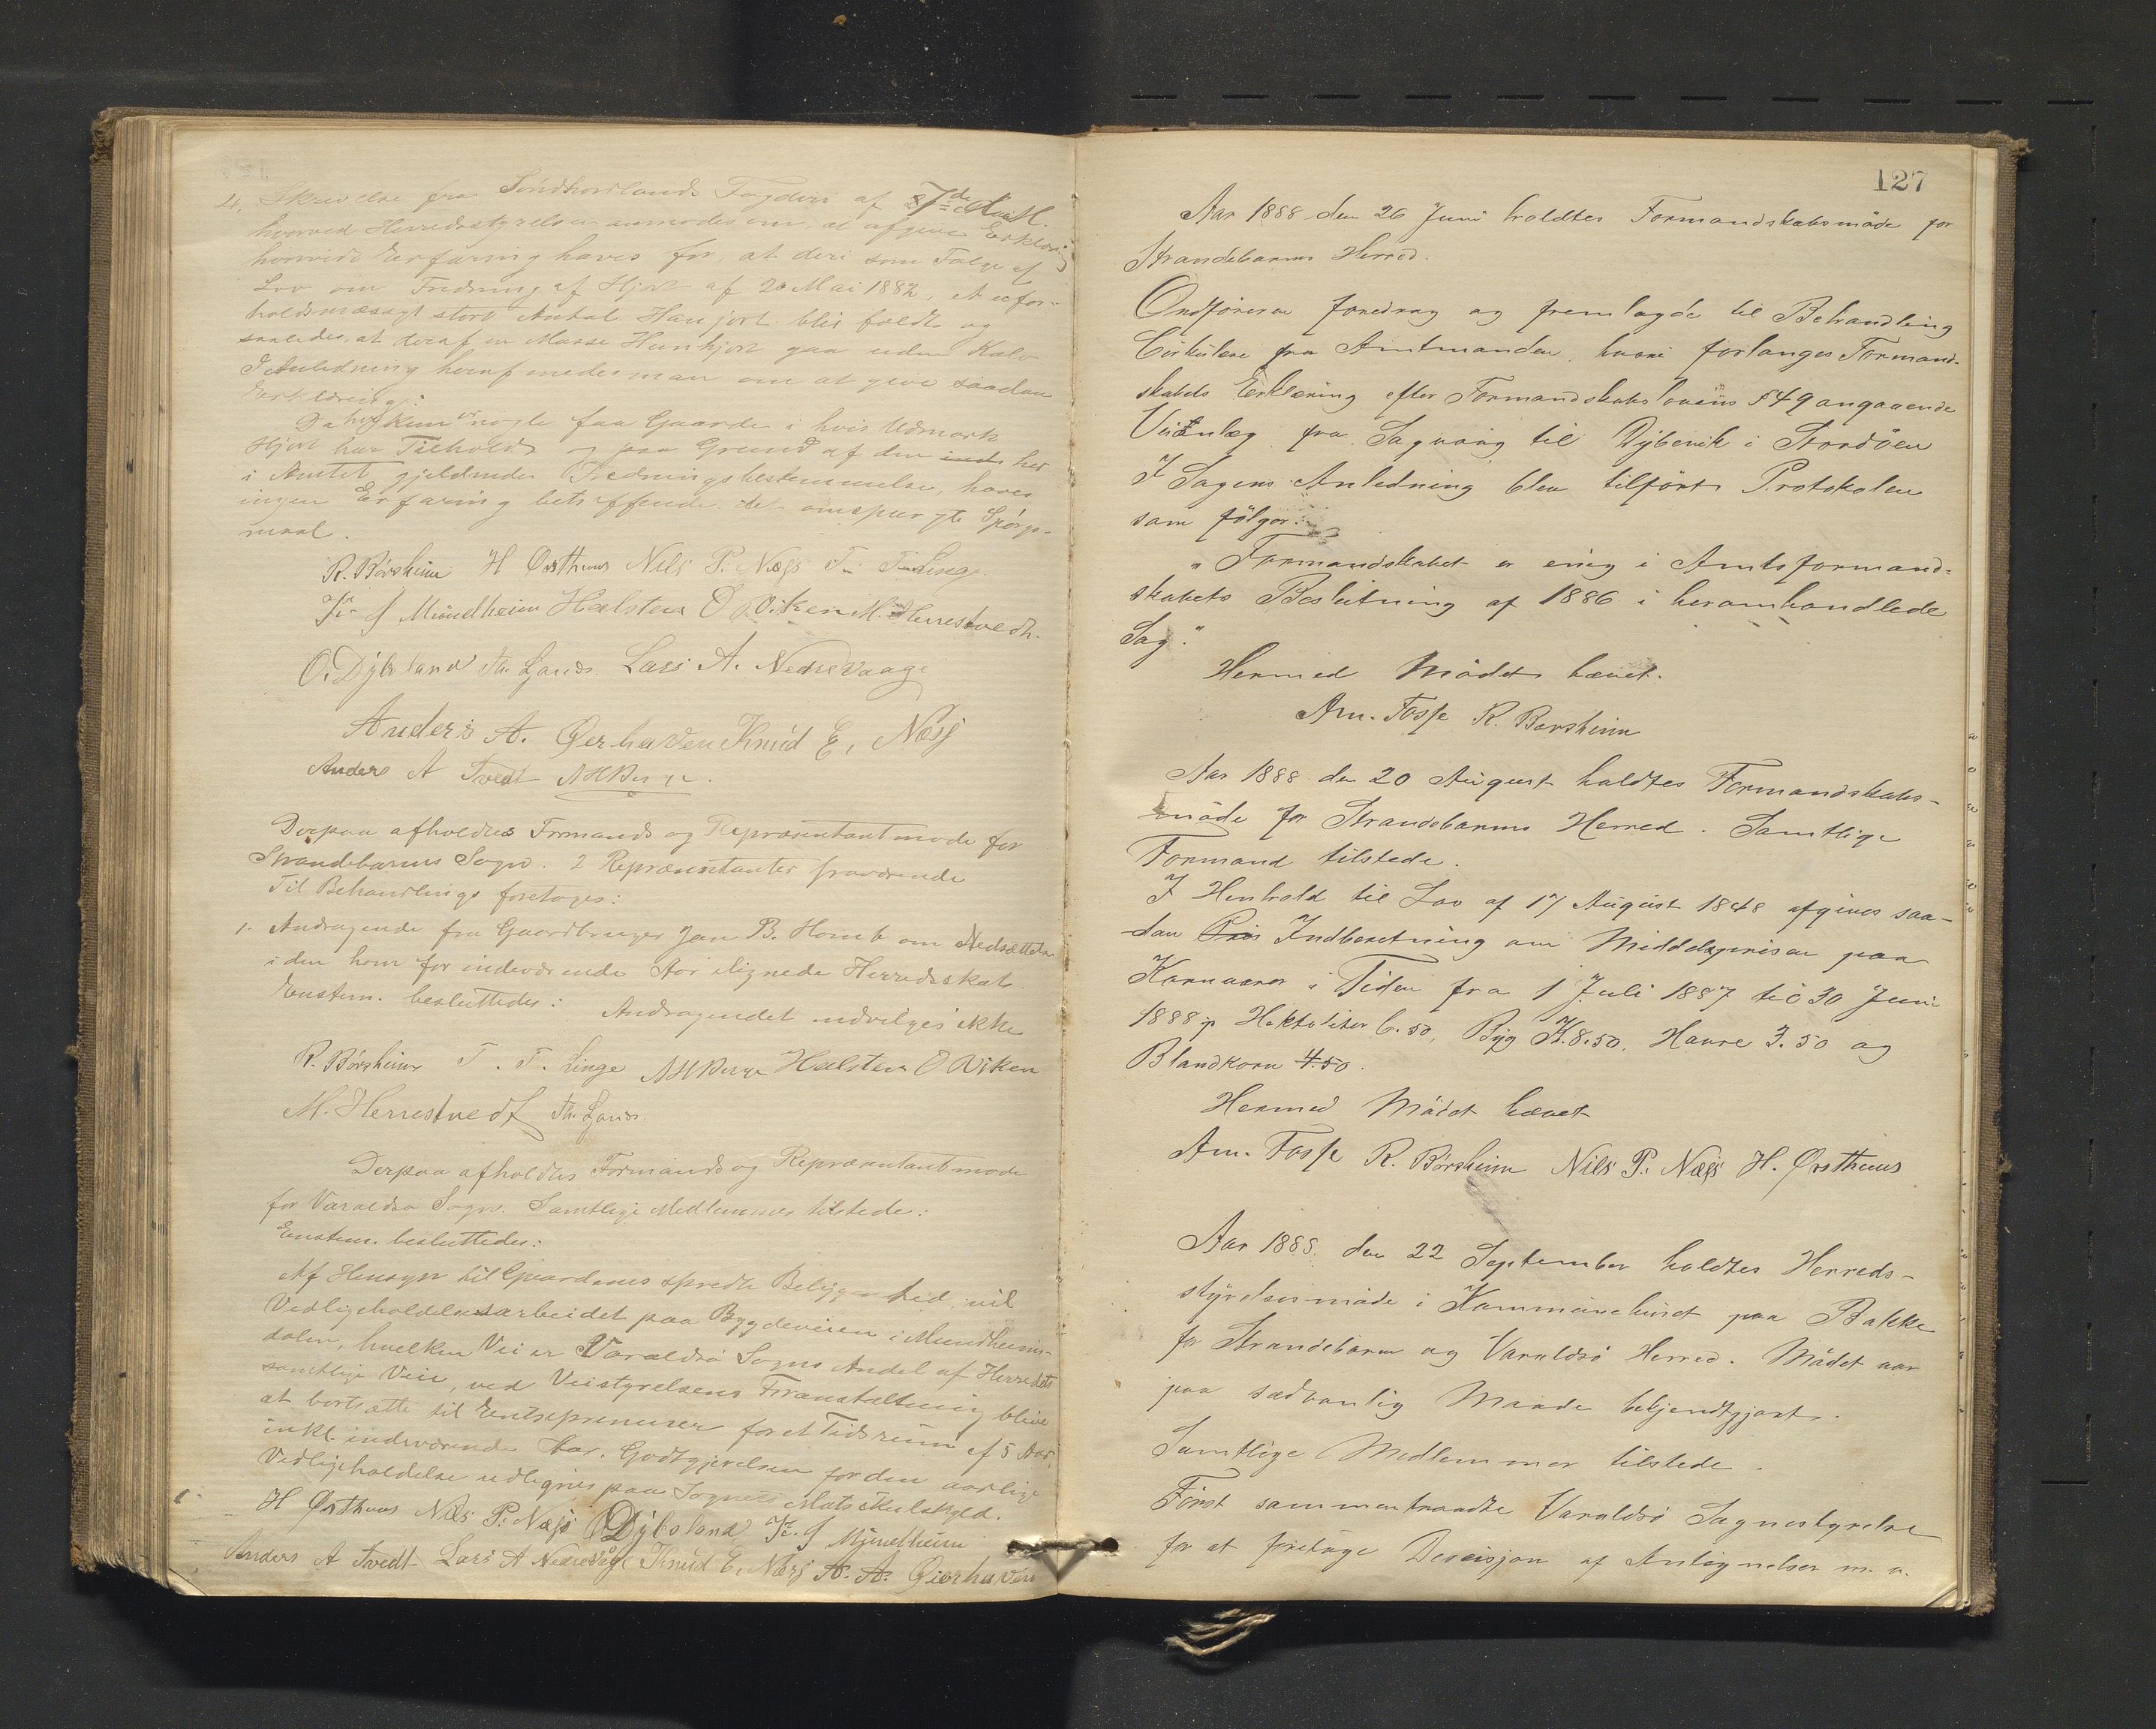 4. Skrivelse fra Søndhordlands Fogderi af 7de
hvorved Herredsstyrelsen anmodes om, at afgive Erklæring
hvorvidt Erfaring haves for, at der som Følge af
Lov om Fredning af Hjort af 20 Mai 1882, et ufor-
holdsmæssigt stort Antal Hanhjort blir fældt og
saaledes, at deraf en Masse Hunhjort gaa uden Kalv
I Anledning heraf enedes man om at give saadan
Erklæring:
Da kun nogle faa Gaarde i hvis Udmark
Hjort har Tilhold og paa Grund af den her
i Amtet gjeldende Fredningsbestemmelse, haves
ingen Erfaring betræffende det omspurgte Spørgs-
maal.
R. Børsheim H Østhuus Nils P. Næss T. T. Linge
J Mundheim Halsten O Viken M. Herrestvedt.
O. Dybsland Th. Lands. Lars A. NedreVaage
Anders A. Øerhaven Knud E. Næss
Anders A Tvedt AHBerge.
Derpaa afholdtes Formands og Repræsentantmøde for
Strandebarms Sogn. 2 Repræsentanter fraværende
Til Behandling foretoges:
1. Andragende fra Gaardbruger Jan B. Homb om Nedsættelse
i den ham for indeværende Aar ilignede Herredsskat.
Enstem. besluttedes: Andragendet indvilges ikke
R. Børsheim T. T. Linge AHBerge Halsten O Viken
M. Herrestvedt Th. Lands.
Derpaa afholdtes Formands og Repræsentantmøde
for Varaldsø Sogn. Samtlige Medlemmer tilstede:
Enstem. besluttedes:
Af Hensyn til Gaardenes spredte Beliggenhed, vil
Vedligeholdelsesarbeidet paa Bygdeveien i Mundheims-
dalen, hvilken Vei er Varaldsø Sogns Andel af Herredets
samtlige Veie, ved Veistyrelsens Foranstaltning blive
at bortsætte til Entreprenører for et Tidsrum af 5 Aar,
inkl. indeværende Aar. Godtgjørelsen for den aarlige
Vedligeholdelse udlignes paa Sognets Matrikulskyld.
H Østhuus Nils P. Næss O Dybsland J Mundheim
Anders A Tvedt Lars A Nedrevåge Knud E. Næss A. A. Øierhaven
127
Aar 1888 den 26 Juni holdtes Formandskabsmøde for
Strandebarms Herred.
Ordføreren foredrog og fremlagde til Behandling
Cirkulære fra Amtmanden, hvori forlanges Formand-
skabets Erklæring efter Formandskabslovens § 49 angaaende
Veianlæg fra Sagvaag til Dybevik i Stordøen
I Sagens Anledning blev tilført Protokolen
som følger:
"Formandskabet er enig i Amtsformand-
skabets Beslutning af 1886 i heromhandlede
Sag."
Hermed Mødet hævet.
Am. Fosse R. Børsheim
Aar 1888 den 20 August holdtes Formandskabs-
møde for Strandebarms Herred. Samtlige
Formænd tilstede.
I Henhold til Lov af 17 August 1848 afgives saa-
dan Pris Indberetning om Middelsprisen paa
Kornvarer i Tiden fra 1 Juli 1887 til 30 Juni
1888 pr Hektoliter 6.50, Byg K. 8.50, Havre 3.50 og
Blandkorn 4.50.
Hermed Mødet hævet
Am. Fosse R. Børsheim Nils P. Næss H. Østhuus
Aar 1888. den 22 September holdtes Herreds-
styrelsesmøde i Kommunehuset paa Bakke
for Strandebarm og Varaldsø Herred. Mødet var
paa sædvanlig Maade bekjendtgjort.
Samtlige Medlemmer tilstede.
Først sammentraadte Varaldsø Sognestyrelse
for at foretage Descisjon af Antegnelser m. v.